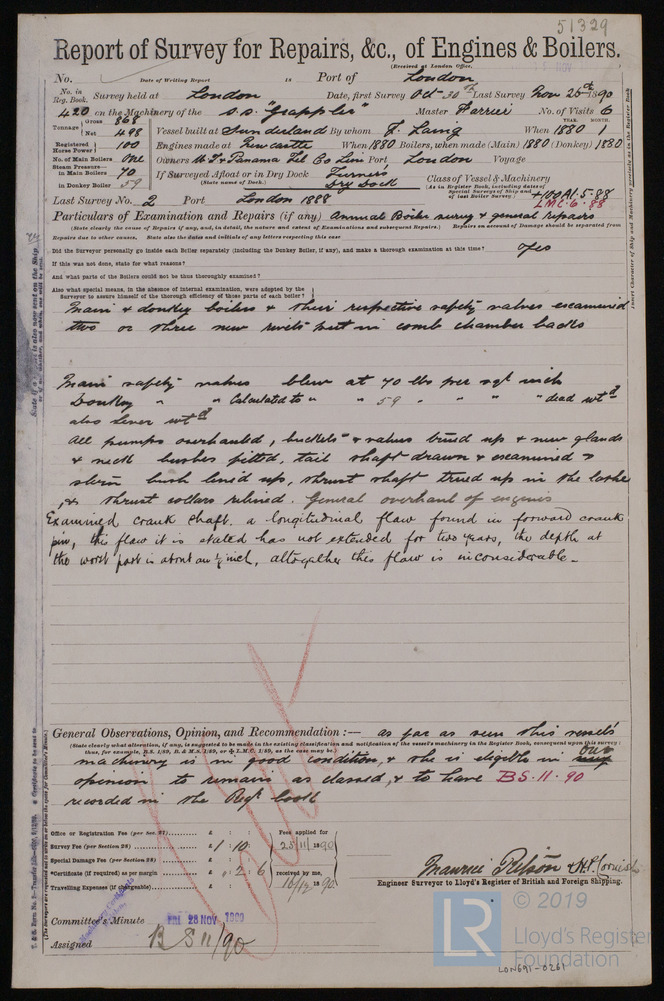 51329
Report of Survey for Repairs, &c., of Engines & Boilers.
(Received at London Office,
No. Date of Writing Report 18 Port of London
No. in Reg. Book. Survey held at London Date, first Survey Oct 30th Last Survey Nov 25th 1890
420 on the Machinery of the S.S. "Grappler" Master Farrier No. of Visits 6
Tonnage Gross 868 Net 498 Vessel built at Sunderland By whom J. Laing When 1880 1
YEAR. MONTH.
Registered Horse Power 100 Engines made at Newcastle When 1880 Boilers, when made (Main) 1880 (Donkey) 1880
No. of Main Boilers one Owners W. I. & Panama Tel Co Lim Port London Voyage
Steam Pressure in Main Boilers 70 If Surveyed Afloat or in Dry Dock Turners Dry Dock
(State name of Dock.)
in Donkey Boiler 59
Class of Vessel & Machinery
(As in Register Book, including dates of Special Surveys of Ship and of last Boiler Survey)
+100A1.5.88
LMC.6.88
Last Survey No. 2 Port London 1888
Particulars of Examination and Repairs (if any) Annual Boiler survey & general repairs
(State clearly the cause of Repairs if any, and, in detail, the nature and extent of Examinations and subsequent Repairs.) Repairs on account of Damage should be separated from
Repairs due to other causes, State also the dates and initials of any letters respecting this case
Did the Surveyor personally go inside each Boiler separately (including the Donkey Boiler, if any), and make a thorough examination at this time? Yes
If this was not done, state for what reasons?
And what parts of the Boilers could not be thus thoroughly examined?
Also what special means, in the absence of internal examination, were adopted by the Surveyor to assure himself of the thorough efficiency of those parts of each boiler?
Main & donkey boilers & their respective safety valves examined
two or three new rivets put in comb chamber backs
Main safety valves blew at 70 lbs per sqr inch
Donkey " " Calculated to " " 59 " " " dead wtd
also lever wtd
All pumps overhauled, buckets & valves trued up & new glands
& neck bushes fitted, tail shaft drawn & examined &
stern bush lined up, thrust shaft trued up in the lathe
& thrust collars relined. General overhaul of engines
Examined crank shaft. a longitudinal flaw found in forward crank
pin, this flaw it is stated has not extended for two years, the depth at
the worst part is about an 1/8 inch, altogether this flaw is inconsiderable -
General Observations, Opinion, and Recommendation :— as far as seen this vessel's
(State clearly what alteration, if any, is suggested to be made in the existing classification and notification of the vessel's machinery in the Register Book, consequent upon this survey:
thus, for example, B.S. 1/89, B. & M.S. 1/89, or L.M.C. 1/89, as the case may be.)
machinery is in good condition, & she is eligible in our
opinion to remain as classed, & to have BS.11.90
recorded in the Regr book
Office or Registration Fee (per Sec. 27)........ £ : : Fees applied for
Survey Fee (per Section 28) ........ £ 1 : 10 : 25/11/1890
Special Damage Fee (per Section 28) ........ £ : :
*Certificate (if required) as per margin £ 0 : 2 : 6 received by me,
Travelling Expenses (if chargeable)........ £ : : 16/12 1890
Maurice Pilson & H.P. Cornish
Engineer Surveyor to Lloyd's Register of British and Foreign Shipping.
Committee's Minute FRI 28 NOV 1890
Assigned B S 11/90
© 2019
LR
Lloyd's Register
Foundation
LON691-0261